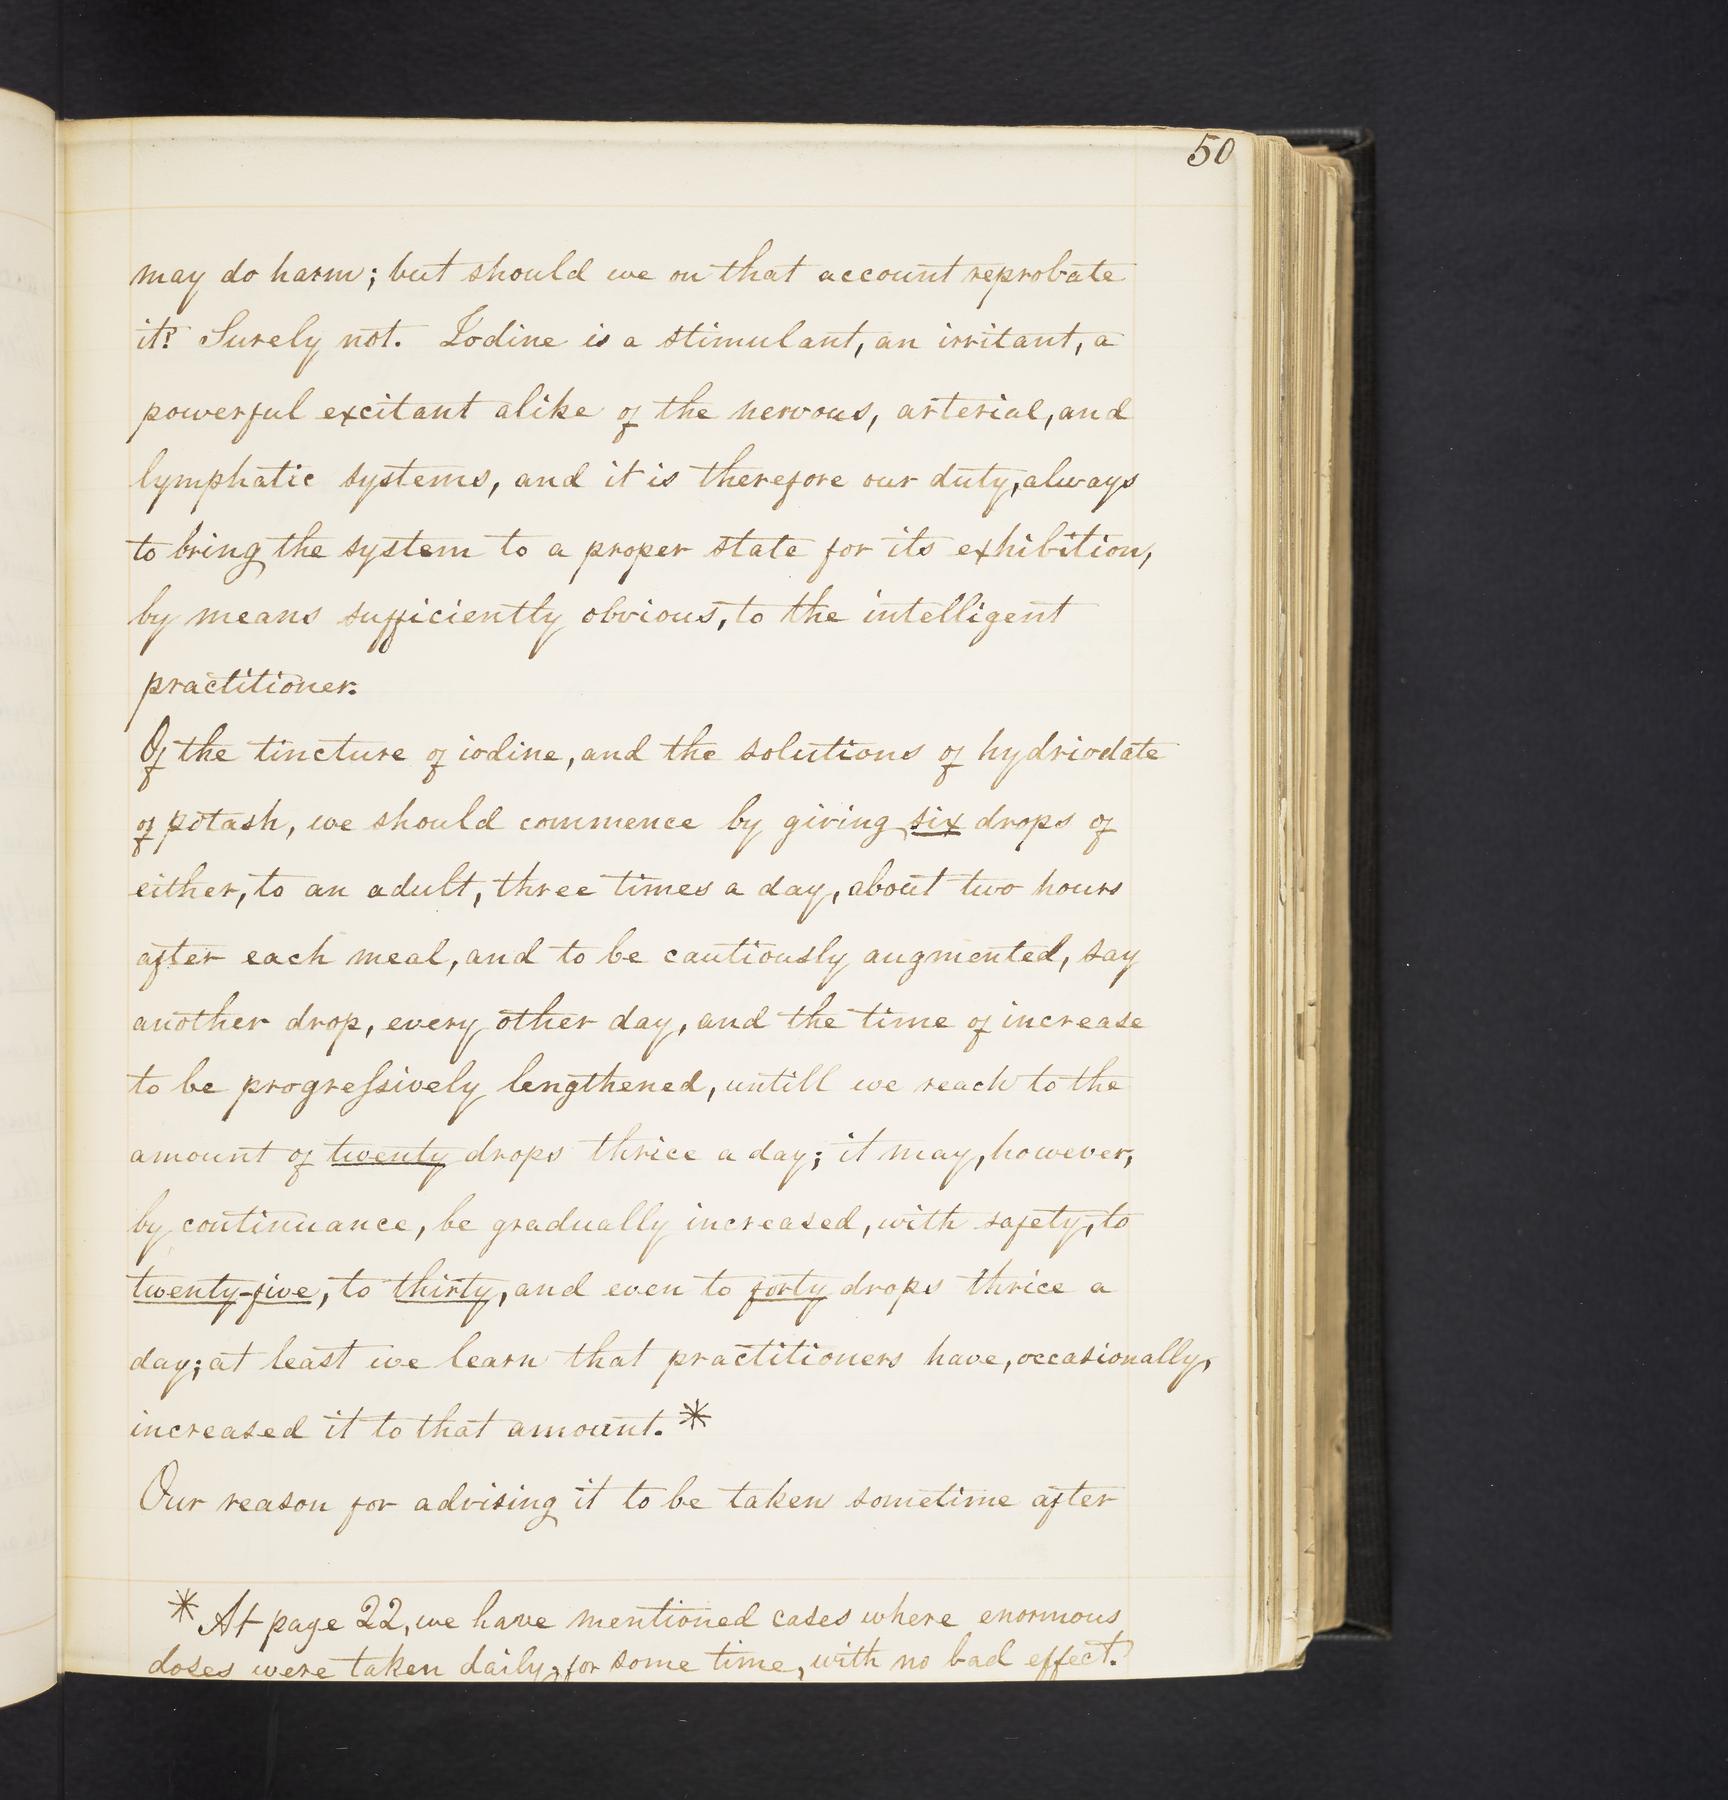 50
may do harm; but should we on that account reprobate
it? Surely not. Iodine is a stimulant, an irritant, a
powerful excitant alike of the nervous, arterial, and
lymphatic systems, and it is therefore our duty, always
to bring the system to a proper state for its exhibition,
by means sufficiently obvious, to the intelligent
practitioner.
Of the tincture of iodine, and the solutions of hydriodate
of potash, we should commence by giving six drops of
either, to an adult, three times a day, about two hours
after each meal, and to be cautiously augmented, say
another drop, every other day, and the time of increase
to be progreſsively lengthened, untill we reach to the
amount of twenty drops thrice a day; it may, however,
by continuance, be gradually increased, with safety, to
twenty-five, to thirty, and even to forty drops thrice a
day; at least we learn that practitioners have, occasionally,
increased it to that amount.*
Our reason for advising it to be taken sometime after
* At page 22, we have mentioned cases where enormous
doses were taken daily, for some time, with no bad effect.